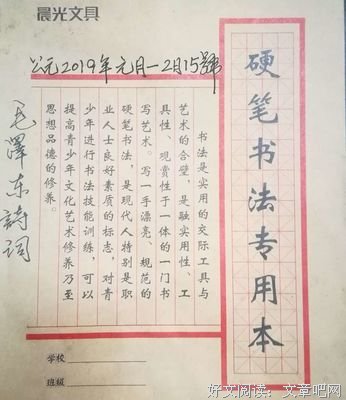 晨光文具
公元2019年元月一2月15號
硬笔书法专用本
书法是实用的交际工具与
艺术的合壁，是融实用性、工
具性、观赏性于一体的一门书
写艺术。写一手漂亮、规范的
硬笔书法，是现代人特别是职
业人士良好素质的标志，对青
少年进行书法技能训练，可以
提高青少年文化艺术修养乃至
思想品德的修养。
毛澤东詩词
学校
班级
好文阅读：文章吧网